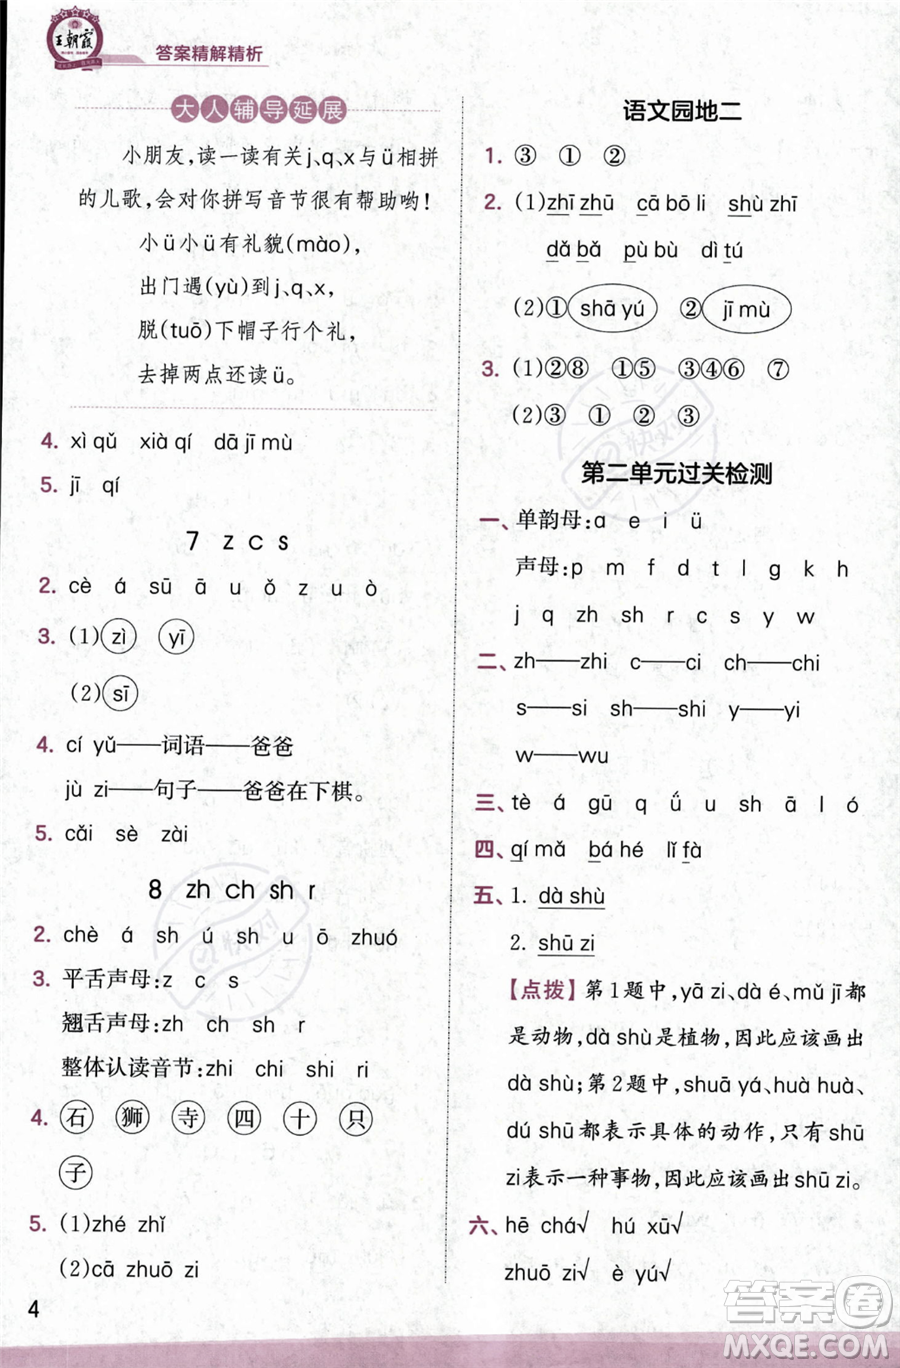 王朝霞
答案精解精析
大人辅导延展
小朋友,读一读有关j、q、x与ü相拼
的儿歌,会对你拼写音节很有帮助哟!
小ü小ü有礼貌(mào),
出门遇(yù)到j、q、x,
脱(tuō)下帽子行个礼,
去掉两点还读ü。
4. xì qǔ xià qí dā jī mù
5. jī qí
7 z c s
2. cè á sū ā u ǒ z u ò
3. (1) zì yī
(2) sī
4. cí yǔ——词语——爸爸
jù zi——句子——爸爸在下棋。
5. cǎi sè zài
8 zh ch sh r
2. chè á sh ú sh u ō zhuó
3. 平舌声母:z c s
翘舌声母:zh ch sh r
整体认读音节:zhi chi shi ri
4. 石 狮 寺 四 十 只
子
5. (1)zhé zhǐ
(2)cā zhuō zi
4
语文园地二
1. ③ ① ②
2. (1)zhī zhū cā bō li shù zhī
dǎ bǎ pù bù dì tú
(2)① shā yú ② jī mù
3. (1)②⑧ ①⑤ ③④⑥ ⑦
(2)③ ① ② ③
第二单元过关检测
一、单韵母:ɑ e i ü
声母:p m f d t l g k h
j q zh sh r c s y w
二、zh——zhi c——ci ch——chi
s——si sh——shi y——yi
w——wu
三、tè á gū q ǘ sh ā l ó
四、qí mǎ bá hé lǐ fà
五、1. dà shù
2. shū zi
【点拨】第1题中,yā zi、dà é、mǔ jī都
是动物,dà shù是植物,因此应该画出
dà shù;第2题中,shuā yá、huà huà、
dú shū都表示具体的动作,只有shū
zi表示一种事物,因此应该画出shū zi。
六、hē chá√ hú xū√
zhuō zi√ è yú√
答案卷
MXQE.COM